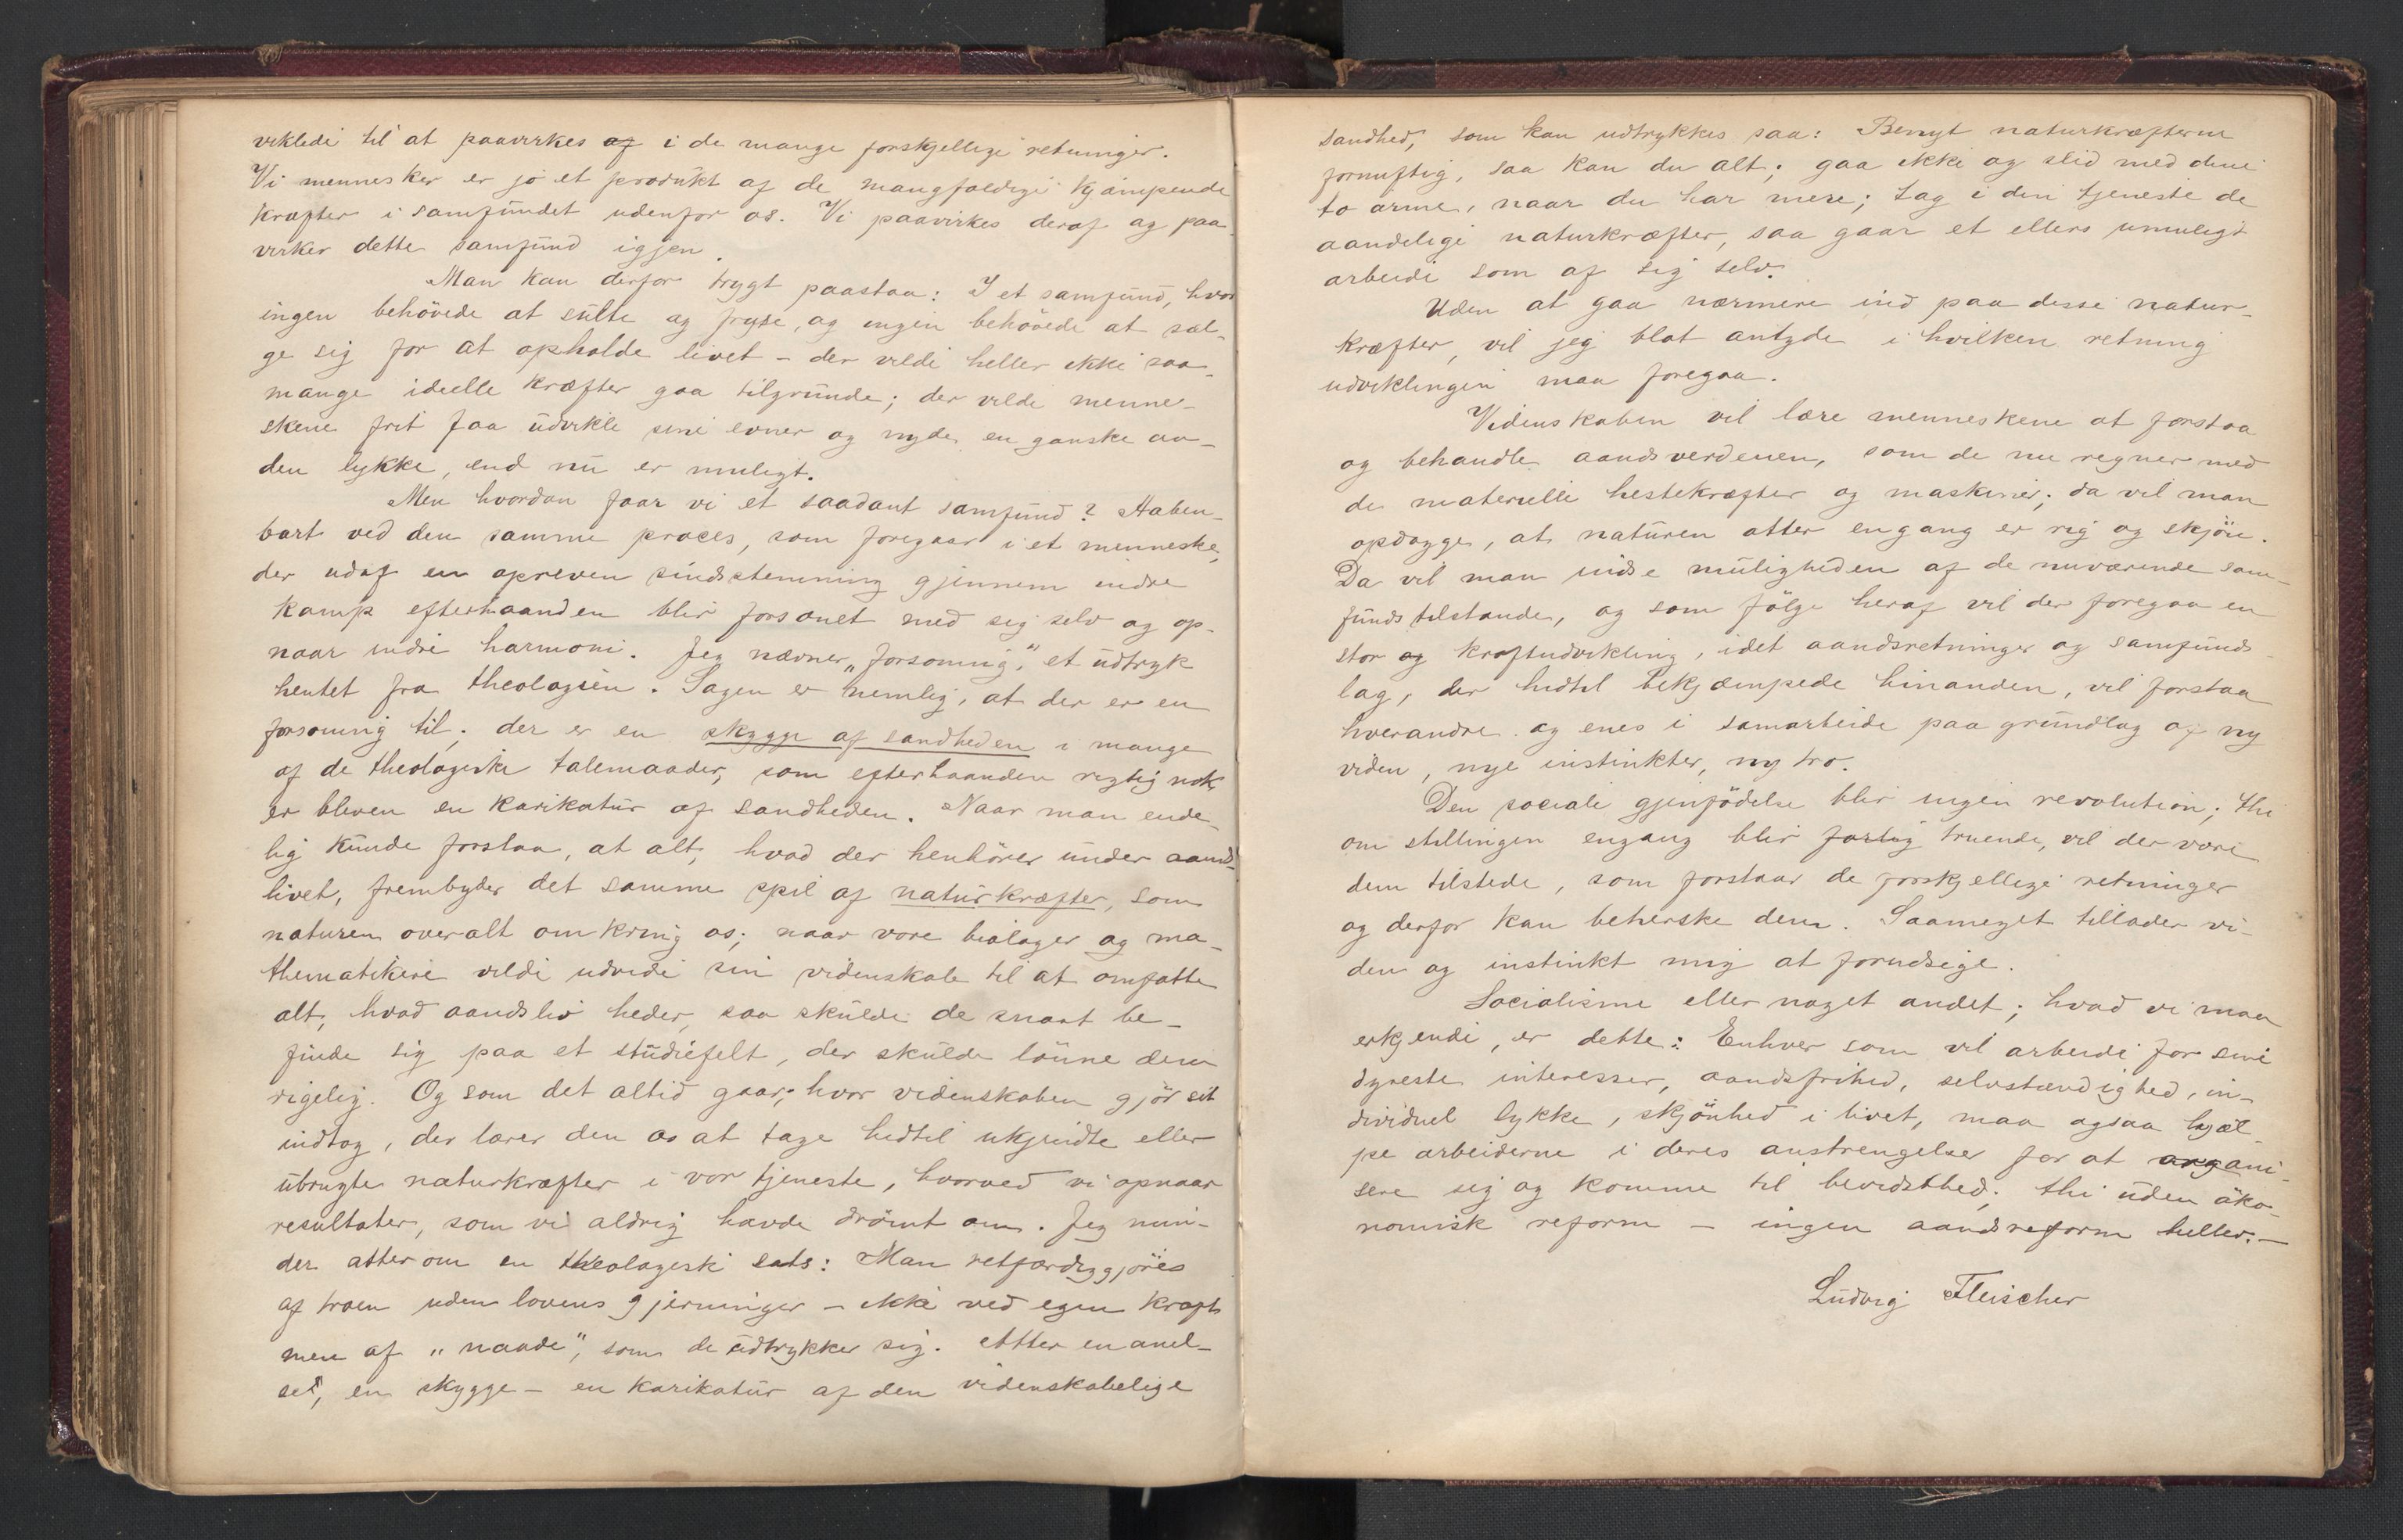 viklede til at paavirkes af i de mange forskjellige retninger.
Vi mennesker er jo et produkt af de mangfoldige kjæmpende
kræfter i samfundet udenfor os. Vi paavirkes deraf og paa-
virker dette samfund igjen.
Man kan derfor trygt paastaa: I et samfund, hvor
ingen behövede at sulte og fryse, og ingen behövede at sæl-
ge sig for at opholde livet – der vilde heller ikke saa
mange ideelle kræfter gaa tilgrunde; der vilde menne-
skene frit faa udvikle sine evner og nyde en ganske an-
den lykke, end nu er muligt.
Men hvordan faar vi et saadant samfund? Aaben-
bart ved den samme proces, som foregaar i et menneske,
der udaf en opreven sindsstemning gjennem indre
kamp efterhaanden blir forsonet med sig selv og op-
naar indre harmoni. Jeg nævner „forsoning", et udtryk
hentet fra theologien. Sagen er nemlig, at der er en
forsoning til; der er en skygge af sandheden i mange
af de theologiske talemaader, som efterhaanden rigtig nok
er bleven en karikatur af sandheden. Naar man ende-
lig kunde forstaa, at alt, hvad der henhörer under aands-
livet, frembyder det samme spil af naturkræfter, som
naturen overalt omkring os; naar vore biologer og ma-
thematikere vilde udvide sin videnskab til at omfatte
alt, hvad aandsliv heder, saa skulde de snart be-
finde sig paa et studiefelt, der skulde lönne dem
rigelig. Og som det altid gaar, hvor videnskaben gjör sit
indtog, der lærer den os at tage hidtil ukjendte eller
ubrugte naturkræfter i vor tjeneste, hvorved vi opnaar
resultater, som vi aldrig havde drömt om. Jeg min-
der atter om en theologisk sats: Man retfærdiggjöres
af troen uden lovens gjerninger – ikke ved egen kraft
men af „naade", som de udtrykker sig. Atter en anel-
se, en skygge – en karikatur af den videnskabelige
sandhed, som kan udtrykkes saa: Benyt naturkræfterne
fornuftig, saa kan du alt; gaa ikke og slid med dine
to arme, naar du har mere; tag i din tjeneste de
aandelige naturkræfter, saa gaar et ellers umuligt
arbeide som af sig selv.
Uden at gaa nærmere ind paa disse natur-
kræfter, vil jeg blot antyde i hvilken retning
udviklingen maa foregaa.
Videnskaben vil lære menneskene at forstaa
og behandle aandsverdenen, som de nu regner med
de materielle hestekræfter og maskiner; da vil man
opdage, at naturen atter engang er rig og skjön.
Da vil man indse muligheden af de nuværende sam-
fundstilstande, og som fölge heraf vil der foregaa en
stor og kraftudvikling, idet aandsretninger og samfunds
lag, der hidtil bekjæmpede hinanden, vil forstaa
hverandre og enes i samarbeide paa grundlag af ny
viden, nye instinkter, ny tro.
Den sociale gjenfödelse blir ingen revolution; thi
om stillingen engang blir farlig truende, vil der være
dem tilstede, som forstaar de forskjellige retninger
og derfor kan beherske dem. Saameget tillader vi-
den og instinkt mig at forudsige.
Socialisme eller noget andet; hvad vi maa
erkjende, er dette: Enhver som vil arbeide for sine
dyreste interesser, aandsfrihed, selvstændighed, in-
dividuel lykke, skjönhed i livet, maa ogsaa hjæl-
pe arbeiderne i deres anstrengelser for at organi-
sere sig og komme til bevidsthed; thi uden öko-
nomisk reform – ingen aandsreform heller. –
Ludvig Fleischer